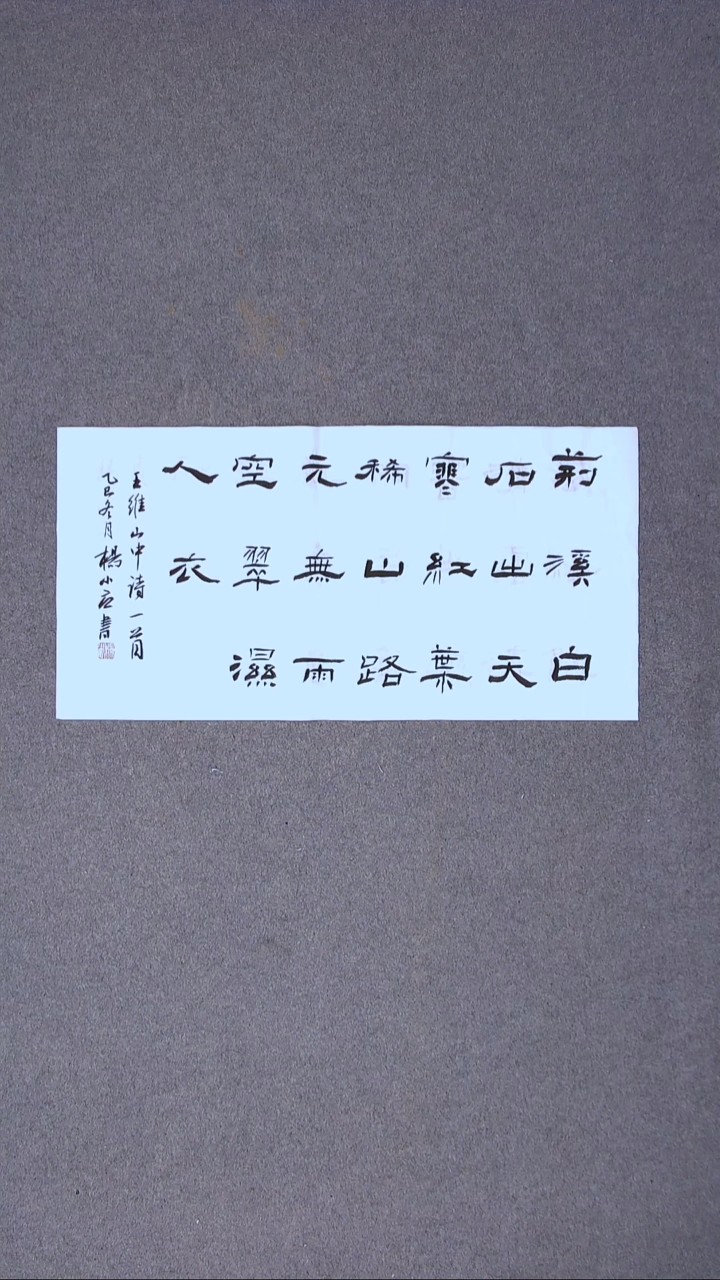 荊溪白
石出天
寒紅葉
稀山路
元無雨
空翠濕
人衣
王維山中诗一首
乙巳冬月楊小書